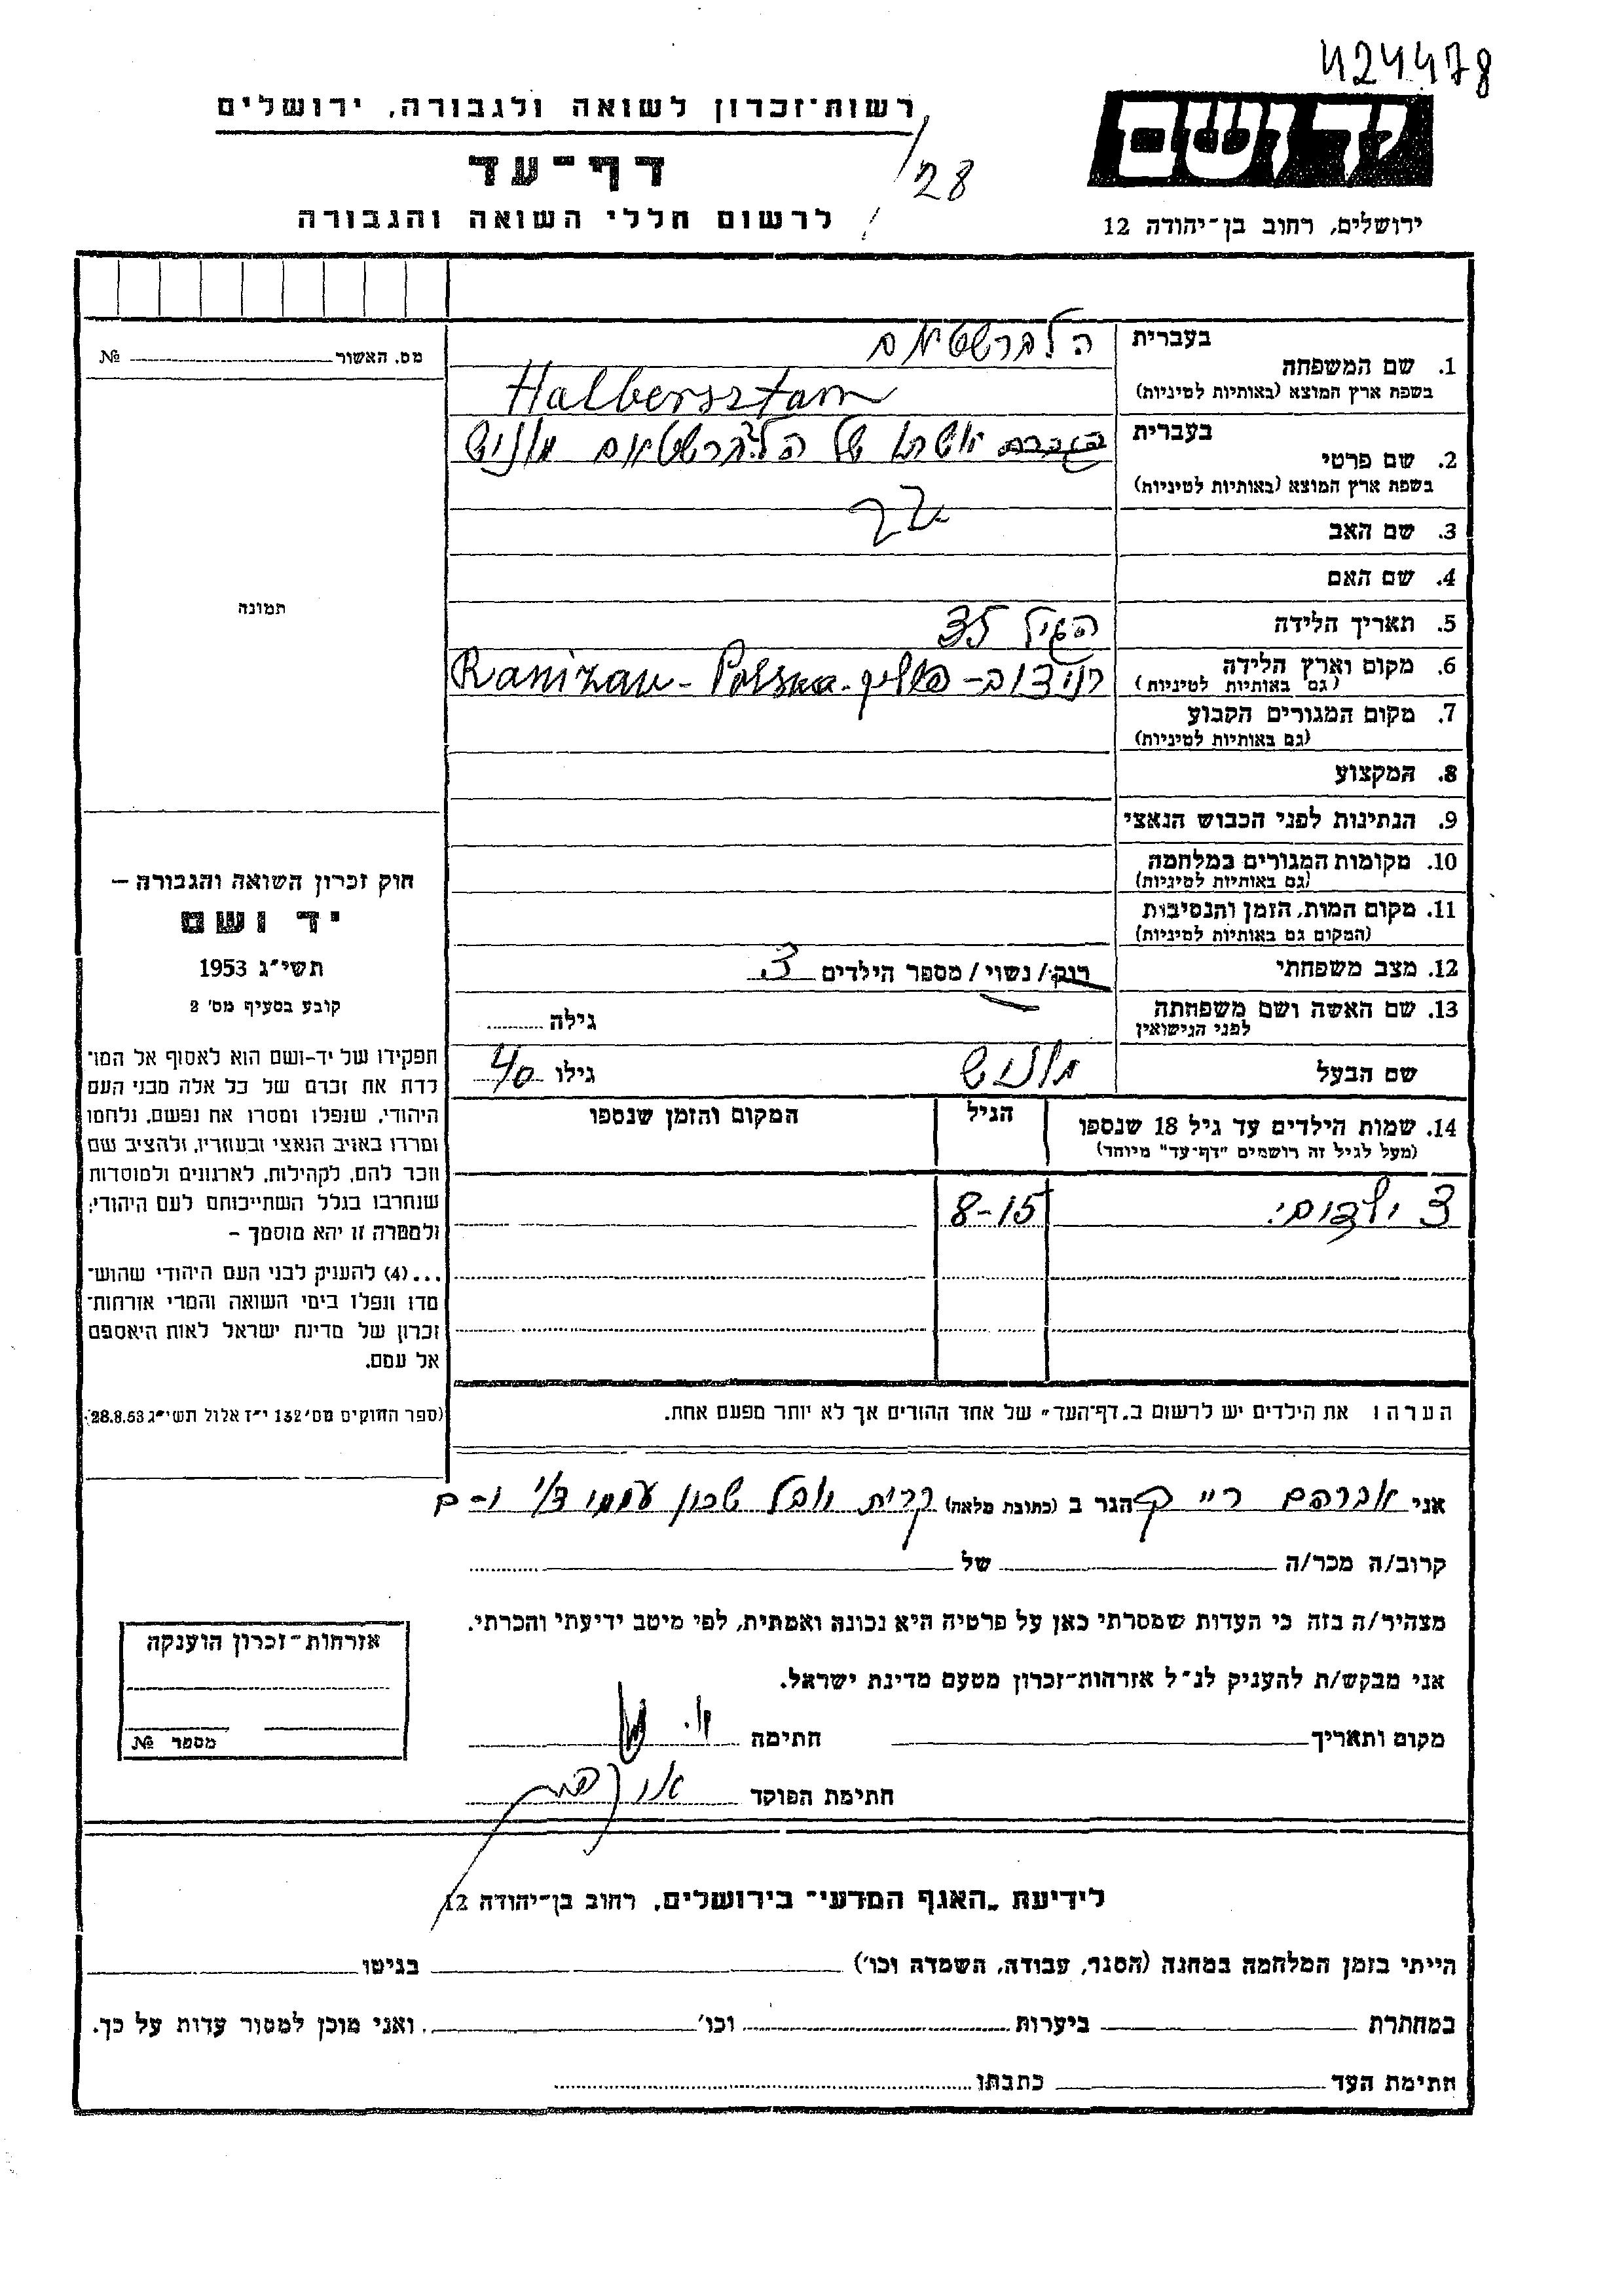 424478
יד ושם
רשות־זכרון לשואה ולגבורה, ירושלים
28
דף־עד
לרשום חללי השואה והגבורה
ירושלים, רחוב בן־יהודה 12
בעברית
הלברשטאם
1. שם המשפחה
בשפת ארץ המוצא (באותיות לטיניות)
Halbersztam
בעברית
אשתו של הלברשטאם
2. שם פרטי
בשפת ארץ המוצא (באותיות לטיניות)
3. שם האב
4. שם האם
5. תאריך הלידה
הגיל 35
6. מקום וארץ הלידה
(גם באותיות לטיניות)
רניזוב - פולין - Ranizau - Polska
7. מקום המגורים הקבוע
(גם באותיות לטיניות)
8. המקצוע
9. הנתינות לפני הכבוש הנאצי
10. מקומות המגורים במלחמה
(גם באותיות לטיניות)
11. מקום המות, הזמן והנסיבות
(המקום גם באותיות לטיניות)
12. מצב משפחתי
רוק / נשוי / מספר הילדים 3
13. שם האשה ושם משפחתה
לפני הנישואין
גילה
שם הבעל
גילו 40
14. שמות הילדים עד גיל 18 שנספו
(מעל לגיל זה רושמים "דף־עד" מיוחד)
הגיל
המקום והזמן שנספו
3 ילדים:
8-15
הערה: את הילדים יש לרשום ב„דף־העד" של אחד ההורים אך לא יותר מפעם אחת.
מס. האשור № 
תמונה
חוק זכרון השואה והגבורה –
יד ושם
תשי״ג 1953
קובע בסעיף מס' 2
תפקידו של יד-ושם הוא לאסוף אל המו־
לדת את זכרם של כל אלה מבני העם
היהודי, שנפלו ומסרו את נפשם, נלחמו
ומרדו באויב הנאצי ובעוזריו, ולהציב שם
וזכר להם, לקהילות, לארגונים ולמוסדות
שנחרבו בגלל השתייכותם לעם היהודי;
ולמטרה זו יהא מוסמך –
...(4) להעניק לבני העם היהודי שהוש־
מדו ונפלו בימי השואה והמרי אזרחות־
זכרון של מדינת ישראל לאות היאספם
אל עמם.
(ספר החוקים מס' 132 י״ז אלול תשי״ג 28.8.53)
אני אברהם הגר ב (כתובת מלאה) קרית יובל שכון עממי
קרוב/ה מכר/ה של
מצהיר/ה בזה כי העדות שמסרתי כאן על פרטיה היא נכונה ואמתית, לפי מיטב ידיעתי והכרתי.
אני מבקש/ת להעניק לנ״ל אזרחות־זכרון מטעם מדינת ישראל.
מקום ותאריך חתימה
חתימת הפוקד
אזרחות־זכרון הוענקה
מספר №
לידיעת „האגף המדעי" בירושלים, רחוב בן־יהודה 12
הייתי בזמן המלחמה במחנה (הסגר, עבודה, השמדה וכו') בגיטו
במחתרת ביערות וכו' ואני מוכן למסור עדות על כך.
חתימת העד כתבתו